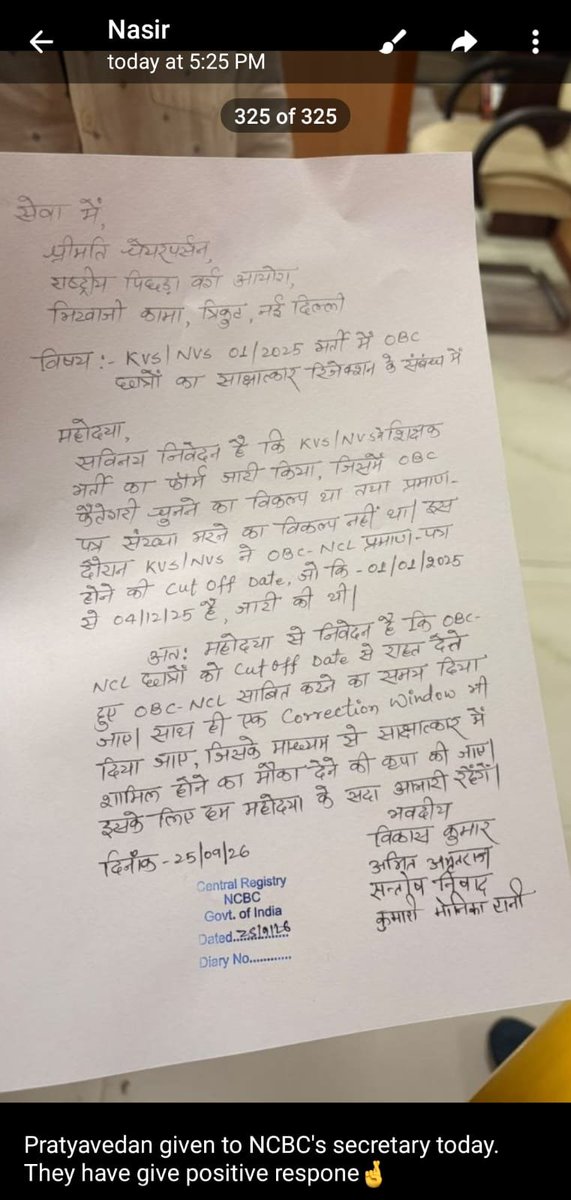 Nasir
today at 5:25 PM
325 of 325
सेवा में,
श्रीमति चेयरपर्सन,
राष्ट्रीय पिछड़ा वर्ग आयोग,
भिखाजी कामा, त्रिकुट, नई दिल्ली
विषय :- KVS/NVS 01/2025 भर्ती में OBC
छात्रों का साक्षात्कार रिजेक्शन के संबंध में
महोदया,
सविनय निवेदन है कि KVS/NVS ने शिक्षक
भर्ती का फॉर्म जारी किया, जिसमें OBC
कैटेगरी चुनने का विकल्प था तथा प्रमाण-
पत्र संख्या भरने का विकल्प नहीं था। इस
दौरान KVS/NVS ने OBC-NCL प्रमाण-पत्र
होने की Cut Off Date, जो कि - 01/01/2025
से 04/12/25 है, जारी की थी।
अतः महोदया से निवेदन है कि OBC-
NCL छात्रों को Cut Off Date से राहत देते
हुए OBC-NCL साबित करने का समय दिया
जाए। साथ ही एक Correction Window भी
दिया जाए, जिसके माध्यम से साक्षात्कार में
शामिल होने का मौका देने की कृपा की जाए।
इसके लिए हम महोदया के सदा आभारी रहेंगें।
भवदीय
दिनाँक - 25/09/26
विकास कुमार
अमित अमृतराज
सन्तोष निषाद
कुमारी मोनिका रानी
Central Registry
NCBC
Govt. of India
Dated..25/9/26
Diary No............
Pratyavedan given to NCBC's secretary today.
They have give positive respone🤞